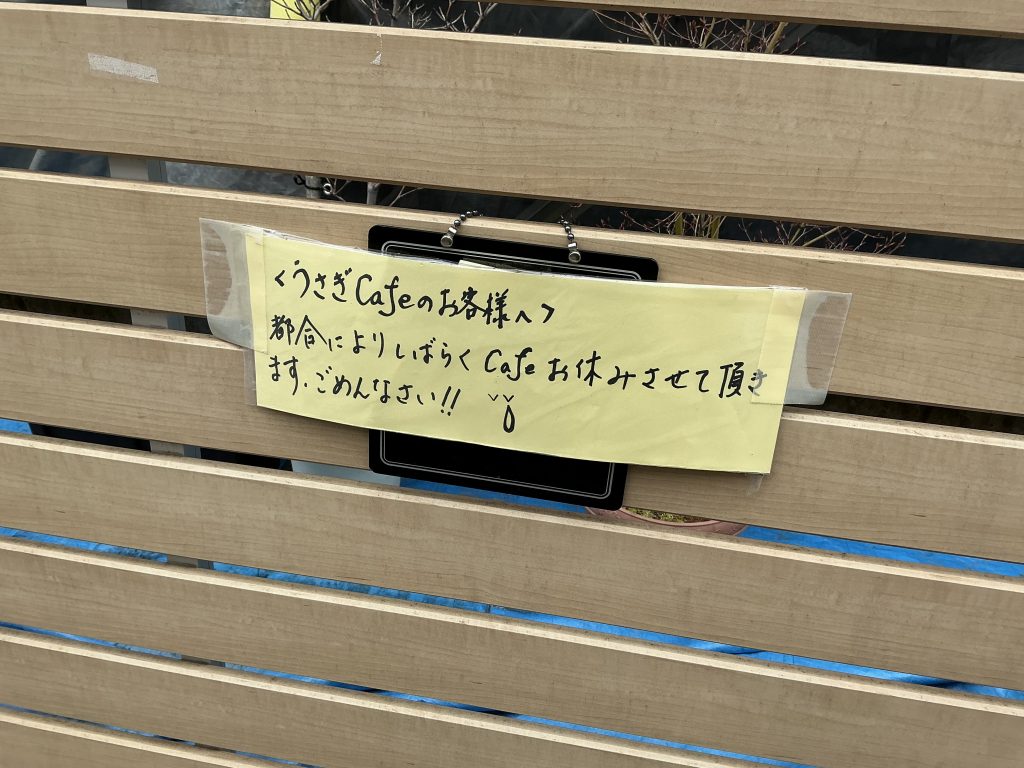 <うさぎCafeのお客様へ>
都合によりしばらくCafeお休みさせて頂き
ます。ごめんなさい!!